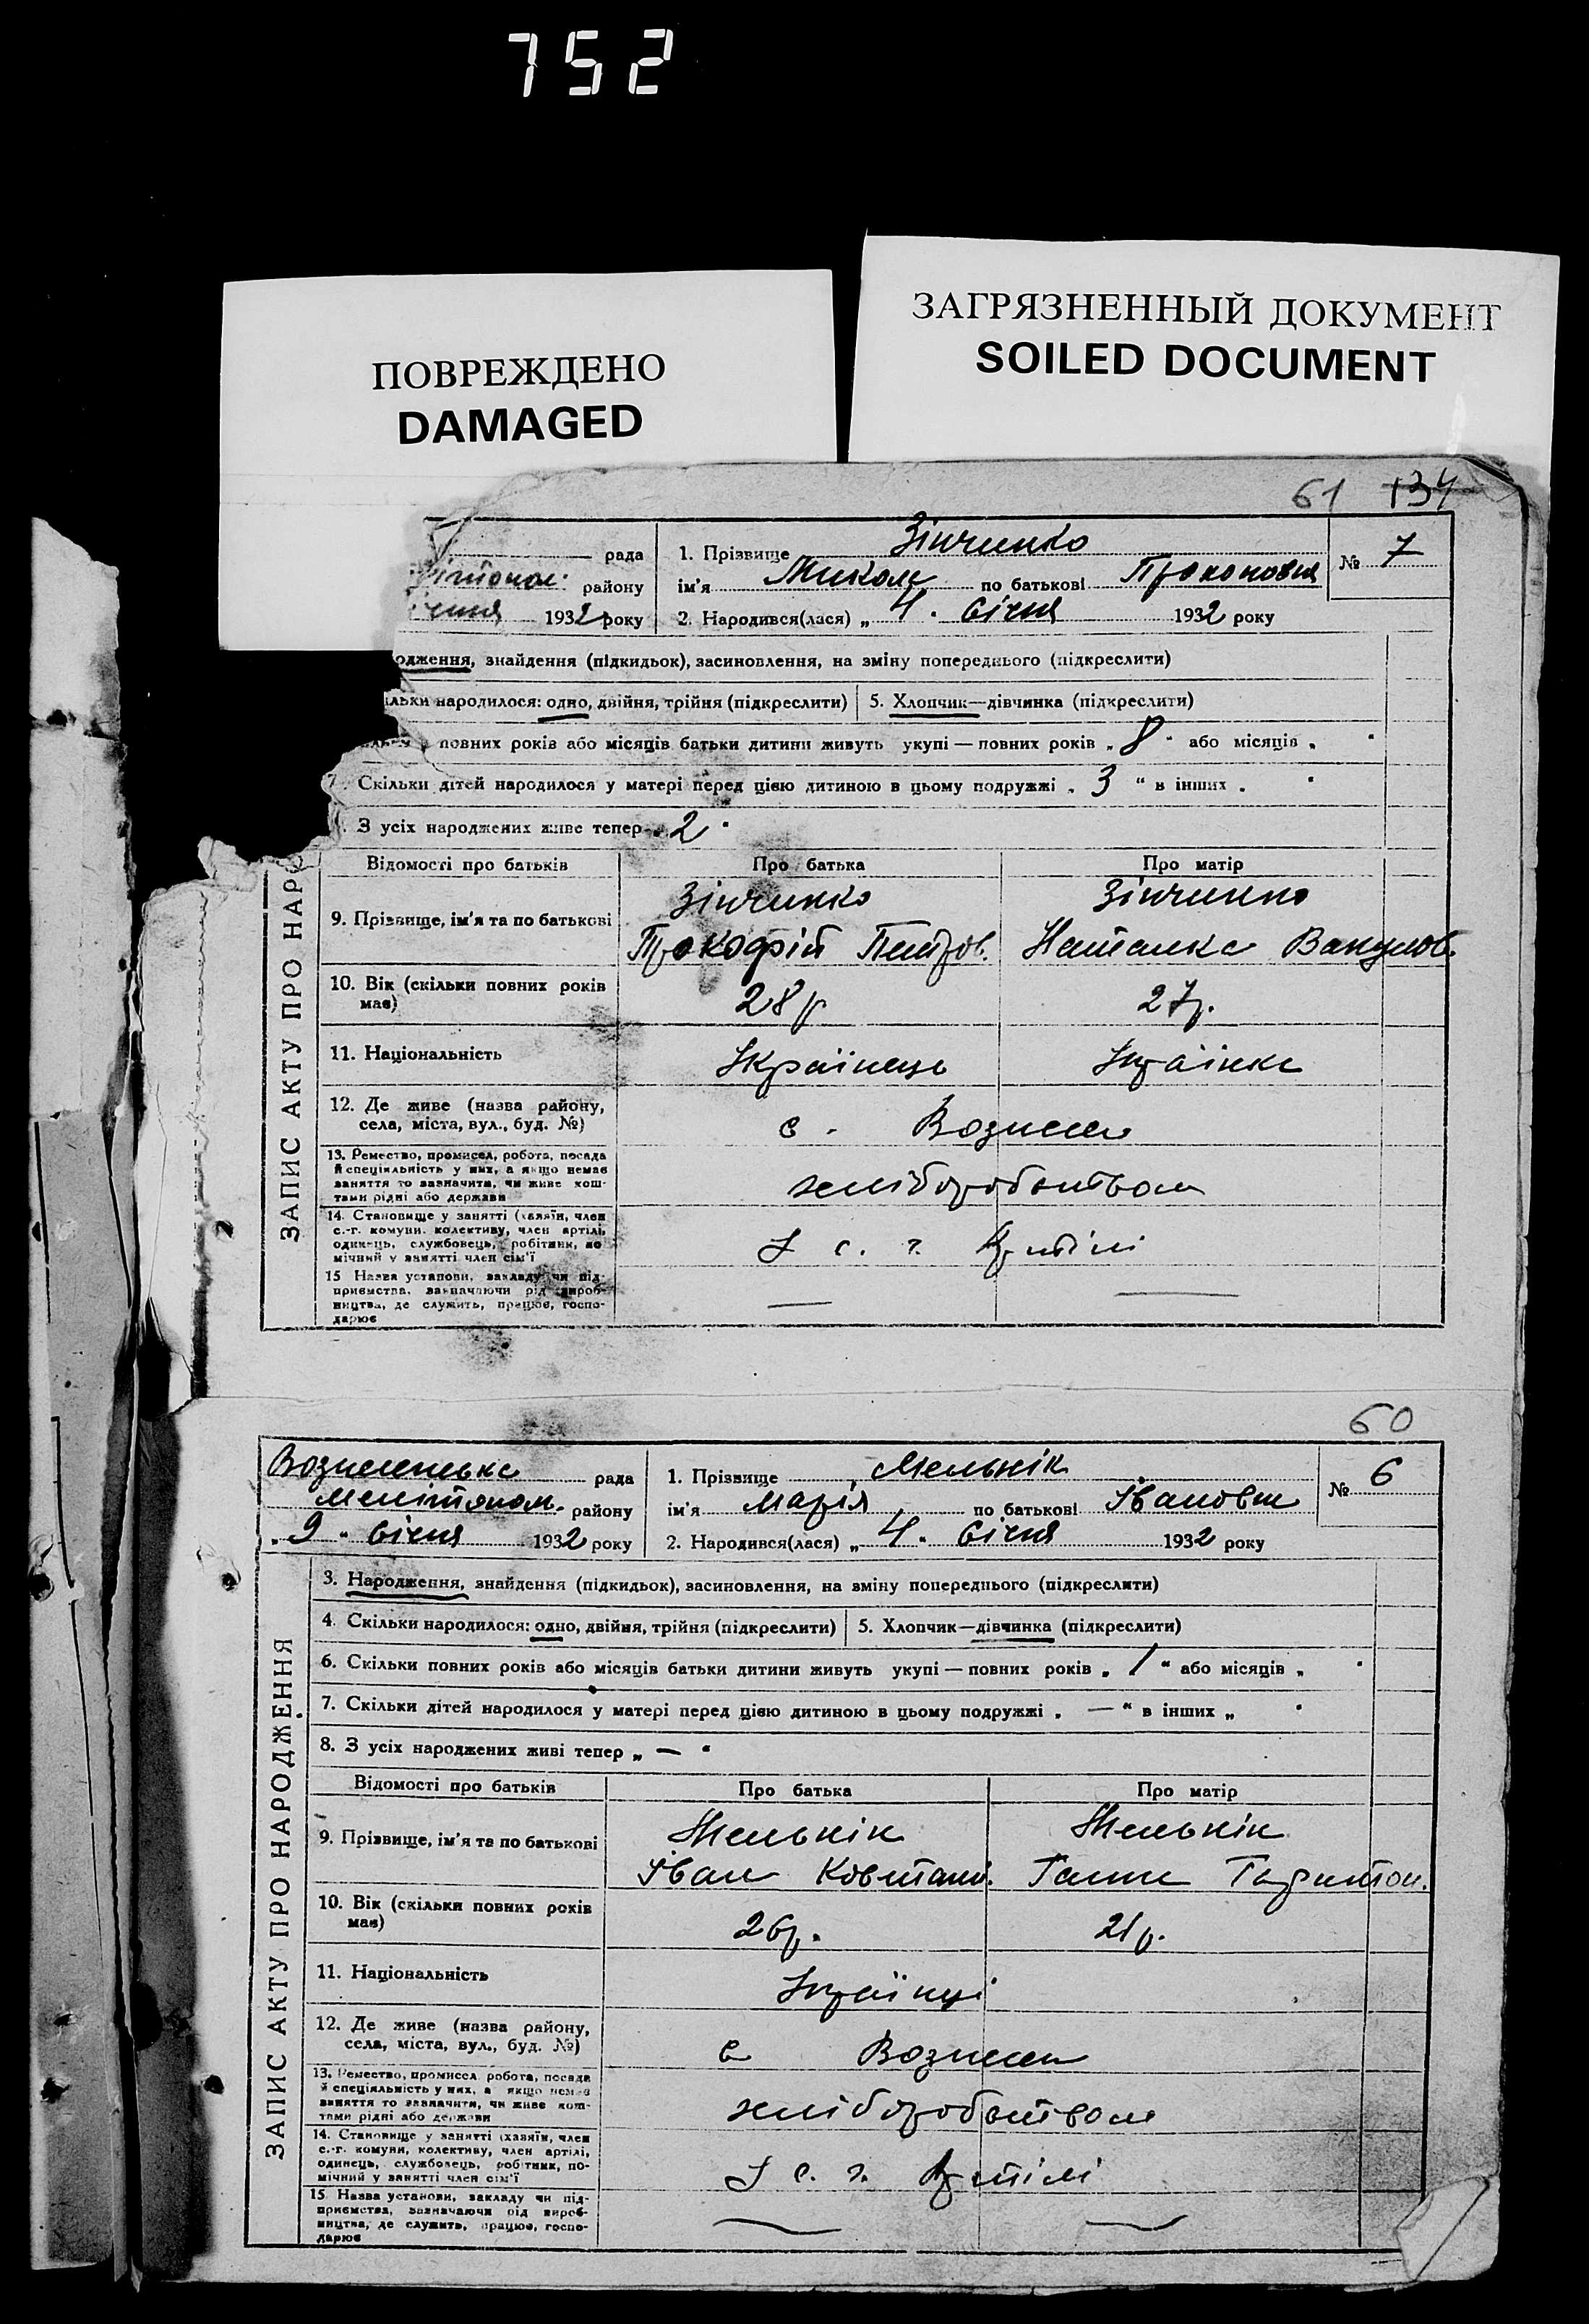 752
ПОВРЕЖДЕНО
DAMAGED
ЗАГРЯЗНЕННЫЙ ДОКУМЕНТ
SOILED DOCUMENT
61 134
рада
ітопол. району
ічня 1932 року
1. Прізвище Зінченко
ім'я Микола по батькові
2. Народився(лася) „ 4 " Січня 1932 року
№ 7
одження, знайдення (підкидьок), засиновлення, на зміну попереднього (підкреслити)
ільки народилося: одно, двійня, трійня (підкреслити) 5. Хлопчик—дівчинка (підкреслити)
повних років або місяців батьки дитини живуть укупі — повних років „ 8 " або місяців „ "
7. Скільки дітей народилося у матері перед цією дитиною в цьому подружжі „ 3 " в інших „ "
З усіх народжених живе тепер „ 2 "
ЗАПИС АКТУ ПРО НАРО
Відомості про батьків Про батька Про матір
9. Прізвище, ім'я та по батькові
Зінченко Зінченко
Прокофій Петров. Наталка Вакулов.
10. Вік (скільки повних років має) 28 р 27 р.
11. Національність Українець Українка
12. Де живе (назва району, села, міста, вул., буд. №) с. Вознесен
13. Ремество, промисел, робота, посада й спеціяльність у них, а якщо немає заняття то зазначити, чи живе коштами рідні або держави хліборобством
14. Становище у занятті (хазяїн, член с.-г. комуни, колективу, член артілі, одинець, службовець, робітник, помічний у занятті член сім'ї У с. г. Артілі
15 Назва установи, закладу чи підприємства, зазначаючи рід виробництва, де служить, працює, господарює — —
60
Вознесенська рада
Мелітопол. району
„ 9 " Січня 1932 року
1. Прізвище Мельнік
ім'я Марія по батькові Івановна
2. Народився(лася) „ 4 " Січня 1932 року
№ 6
3. Народження, знайдення (підкидьок), засиновлення, на зміну попереднього (підкреслити)
4. Скільки народилося: одно, двійня, трійня (підкреслити) 5. Хлопчик—дівчинка (підкреслити)
6. Скільки повних років або місяців батьки дитини живуть укупі — повних років „ 1 " або місяців „ "
7. Скільки дітей народилося у матері перед цією дитиною в цьому подружжі „ — " в інших „ "
8. З усіх народжених живі тепер „ — "
ЗАПИС АКТУ ПРО НАРОДЖЕННЯ
Відомості про батьків Про батька Про матір
9. Прізвище, ім'я та по батькові
Мельнік Мельнік
Іван Ганна
10. Вік (скільки повних років має) 26 р. 21 р.
11. Національність Українці
12. Де живе (назва району, села, міста, вул., буд. №) с Вознесен
13. Ремество, промисел, робота, посада й спеціяльність у них, а якщо немає заняття то зазначити, чи живе коштами рідні або держави хліборобством
14. Становище у занятті (хазяїн, член с.-г. комуни, колективу, член артілі, одинець, службовець, робітник, помічний у занятті член сім'ї У с. г. Артілі
15. Назва установи, закладу чи підприємства, зазначаючи рід виробництва, де служить, працює, господарює — —